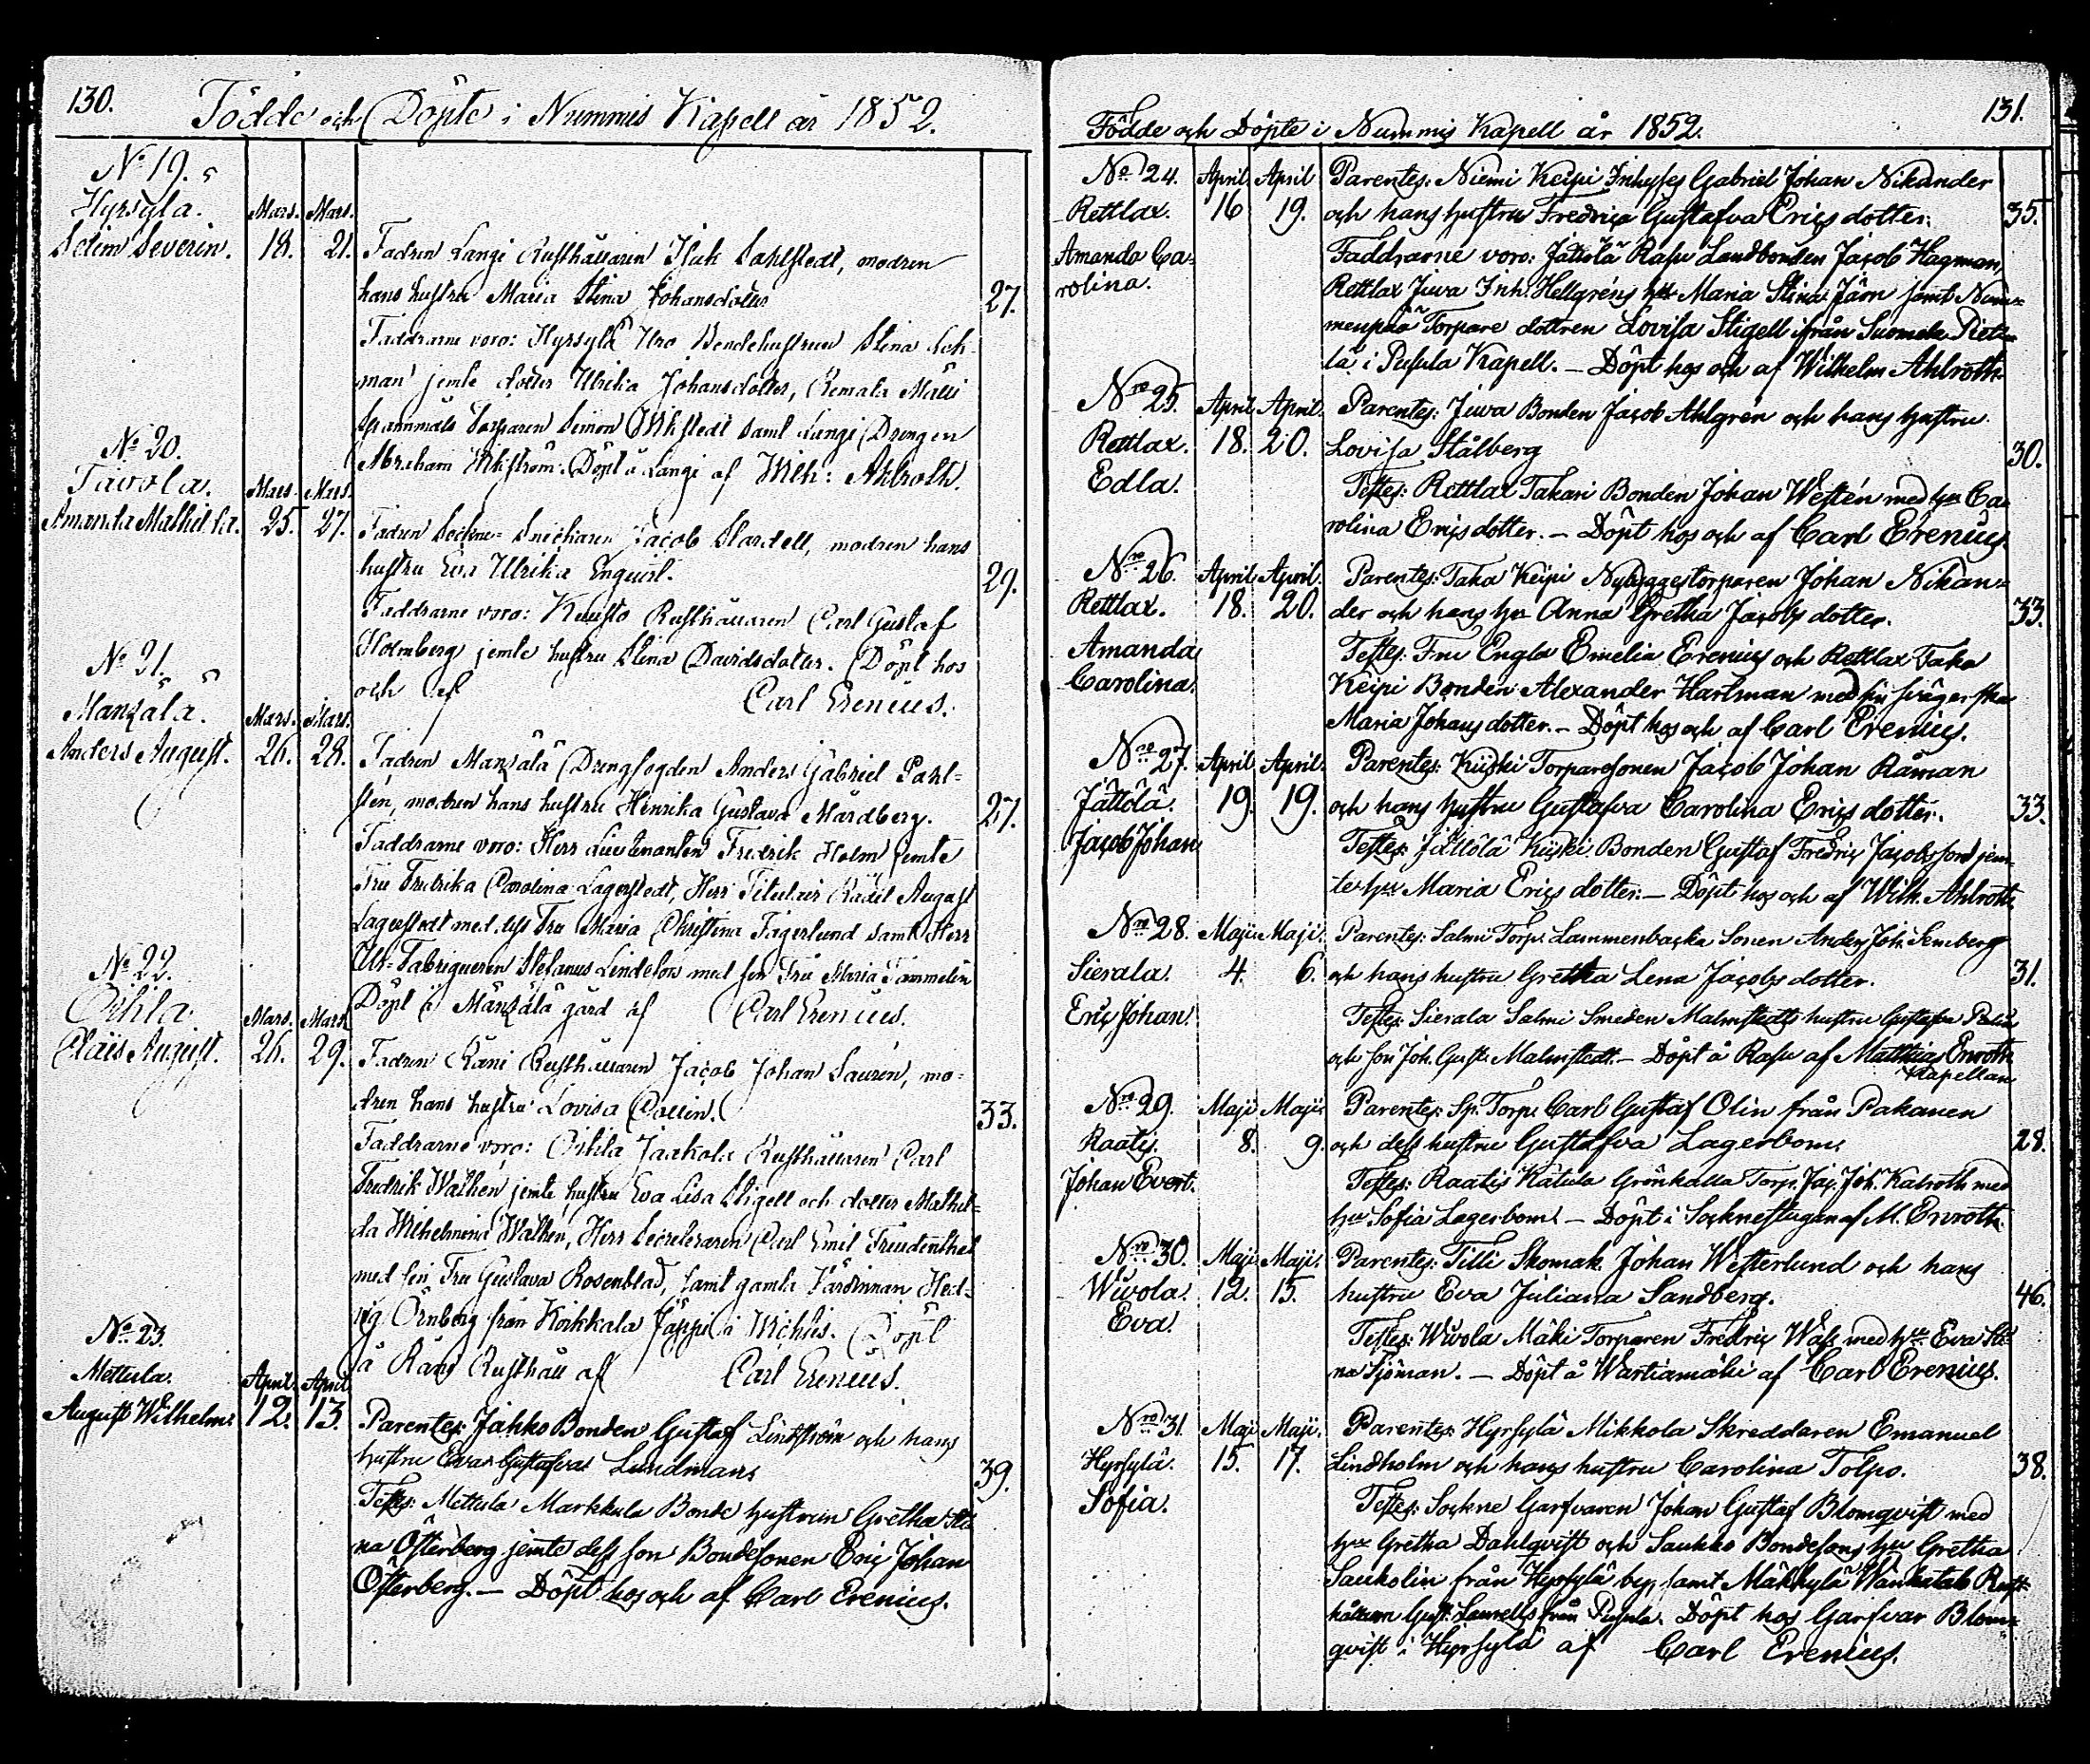 130.
Födde och Döpte i Nummis Kapell år 1852.
No 19.
Hyrsylä.
Selim Severin.
Mars. Mars.
18. 21.
Fadren Langi Rusthållaren Isak Sahlstedt, modren
hans hustru Maria Stina Johansdotter
27.
Faddrarne voro: Hyrsylä Uro Bondehustrun Stina
man jemte dotter Ulrika Johansdotter, Remala
Torparen Simon samt Langi Drengen
Abraham Döpt å Langi af Wilh: Ahlroth.
No 20.
Tavola.
Amanda Mathilda.
Mars. Mars.
25. 27.
Fadren Sockne-Snickaren Jacob Stardell, modren hans
hustru Eva Ulrika Enqvist.
29.
Faddrarne voro: Rusthållaren Carl Gustaf
Holmberg jemte hustru Stina Davidsdotter. Döpt hos
och af Carl Erenius.
No 21.
Mänsälä.
Anders August.
Mars. Mars.
26. 28.
Fadren Mänsälä Drengfogden Anders Gabriel Pahl-
stén, modren hans hustru Henrika Gustava Mårdberg.
27.
Faddrarne voro: Herr Lieutenanten Fredrik Holm jemte
Fru Fredrika Carolina Lagerstedt, Herr Titulair Rådet August
Lagerstedt med dess Fru Maria Christina Fagerlund samt Herr
Ur-Fabriqueren Stefanus Lindelöw med sin Fru Maria Tammelin
Döpt å Mänsälä gård af Carl Erenius.
No 22.
Oihla
Claës August.
Mars. Mars.
26. 29.
Fadren Räni Rusthållaren Jacob Johan Saurén, mo-
dren hans hustru Lovisa Collin.
33.
Faddrarne voro: Jaakola Rusthållaren Carl
Fredrik Wathén jemte hustru Eva Lisa Stigell och dotter Mathil-
da Wilhelmina Wathén, Herr Secreteraren Carl Emil Freudenthal
med sin Fru Gustava Rosenblad, samt gamla Värdinnan Hed-
vig Örnberg från Koikkala Jäppi i Wichtis. Döpt
å Räni Rusthåll af Carl Erenius.
No 23.
Mettula.
August Wilhelm.
April. April
12. 13.
Parentes: Jahko Bonden Gustaf Lindström och hans
hustru Eva Gustafva Lundman
39.
Testes: Mettula Markkula Bonde hustrun Gretha Sti-
na Österberg jemte dess son Bondesonen Eric Johan
Österberg. – Döpt hos och af Carl Erenius.
131.
Födde och Döpte i Nummis Kapell år 1852.
No 24.
Rettlax.
Amanda Ca-
rolina.
April. April
16 19.
Parentes: Niemi Keipi Inhyses Gabriel Johan Nikander
och hans hustru Fredrica Gustafva Ericsdotter.
35.
Faddrarne voro: Jättölä Rasu Landbonden Jacob Hagman,
Rettlax Juva Inh. Hellgréns hu Maria Stina Järn jemt Num-
menpää Torpare dottren Lovisa Stigell ifrån Suomela
lä i Pusula Kapell. – Döpt hos och af Wilhelm Ahlroth.
Nro 25.
Rettlax.
Edla.
April April.
18. 20.
Parentes: Juva Bonden Jacob Ahlgrén och hans hustru
Lovisa Stålberg
30.
Testes: Rettlax Takari Bonden Johan Westén med hu Ca-
rolina Ericsdotter. – Döpt hos och af Carl Erenius.
Nro 26.
Rettlax.
Amanda
Carolina.
April April.
18. 20.
Parentes: Taka Keipi Nybyggestorparen Johan Nikan-
der och hans hu Anna Gretha Jacobs dotter.
33.
Testes: Fru Engla Emelia Erenius och Rettlax Taka
Keipi Bonden Alexander Hartman med sin svägerska
Maria Johans dotter. – Döpt hos och af Carl Erenius.
Nro 27.
Jättölä.
Jacob Johan
April April.
19. 19.
Parentes: Kiiski Torparesonen Jacob Johan Råman
och hans hustru Gustafva Carolina Erics dotter.
33.
Testes: Jättölä Kiiski Bonden Gustaf Fredric Jacobsson jem-
te hu Maria Erics dotter. – Döpt hos och af Wilh. Ahlroth.
Nro 28.
Sierala.
Eric Johan.
Maji Maji.
4. 6.
Parentes: Salmi Torp. Lammenbacka Sonen Anders Joh. Semberg
och hans hustru Gretha Lena Jacobs dotter.
31.
Testes: Sierala Salmi Smeden Malmstedts hustru Gustafva
och son Joh. Gust. Malmstedt. – Döpt å Rasu af Matthias Enroth
Kapellan.
Nro 29.
Raatis.
Johan Evert.
Maji Maji.
8. 9.
Parentes: Sp. Torp. Carl Gustaf Olin från Pakanen
och dess hustru Gustafva Lagerbom.
28.
Testes: Raatis Kätula Grönkalla Torp. Jac. Joh. Kalroth med
hu Sofia Lagerbom. – Döpt i Socknestugan af M. Enroth.
Nro 30.
Wivola.
Eva.
Maji Maji.
12. 15.
Parentes: Tilli Skomak. Johan Westerlund och hans
hustru Eva Juliana Sandberg.
46.
Testes: Wivola Mäki Torparen Fredric Wass med hu Eva Sti-
na Sjöman. – Döpt å Wartiamäki af Carl Erenius.
Nro 31.
Hyrsylä.
Sofia.
Maji Maji.
15. 17.
Parentes: Hyrsylä Mikkola Skreddaren Emanuel
Lindholm och hans hustru Carolina Tolpo.
38.
Testes: Sockne Garfvaren Johan Gustaf Blomqvist med
hu Gretha Dahlqvist och Saukko Bondesons hu Gretha
Saukolin från Hyrsylä by, samt Mäkkylä Rust-
hållaren Gust. Laurells från Pusula. Döpt hos Garfvar Blom-
qvist i Hyrsylä af Carl Erenius.